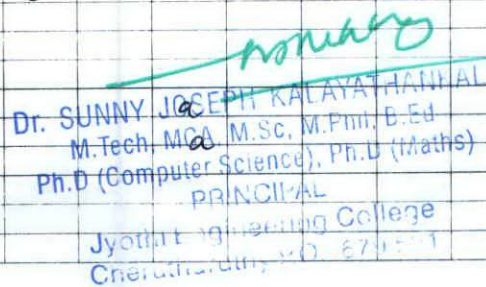 Dr. SUNNY JOSEPH KALAYATHANKAL
M.Tech, MCA, M.Sc, M.Phil, B.Ed
Ph.D (Computer Science), Ph.D (Maths)
PRINCIPAL
Jyothi Engineering College